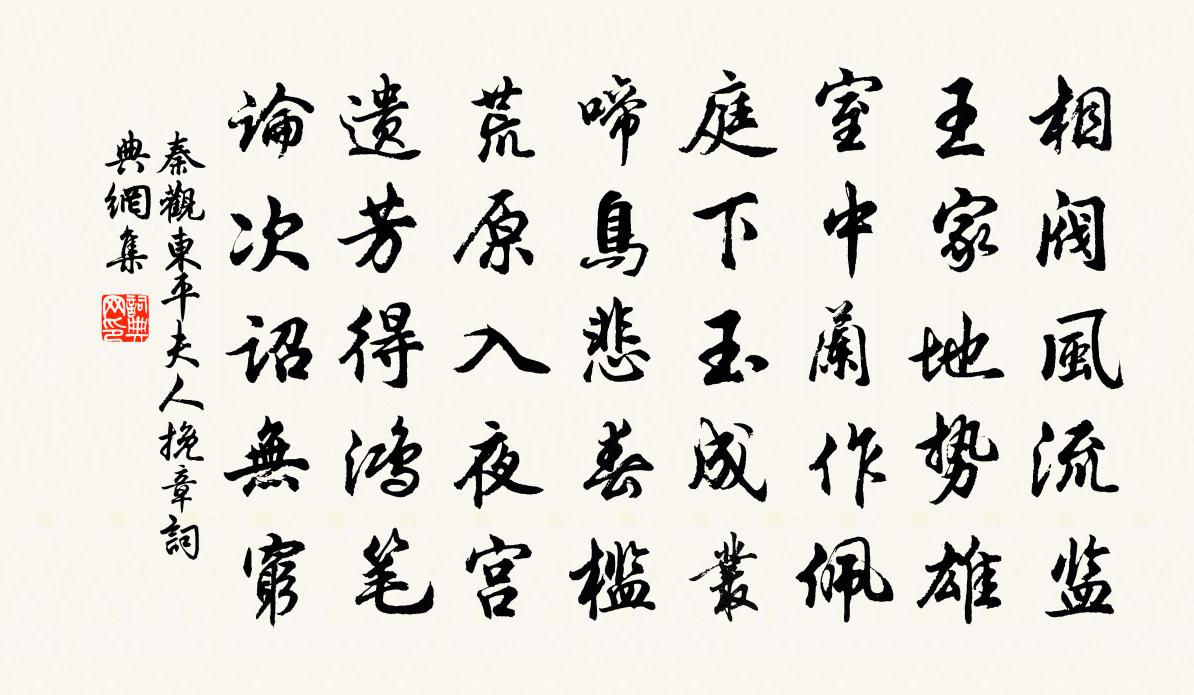 相阀風流监
王家地势雄
室中蘭作佩
庭下玉成叢
啼鳥悲春檻
荒原入夜宫
遗芳得鸿笔
論次詔無窮
秦觀東平夫人挽章詞
典網集
詞典
网印